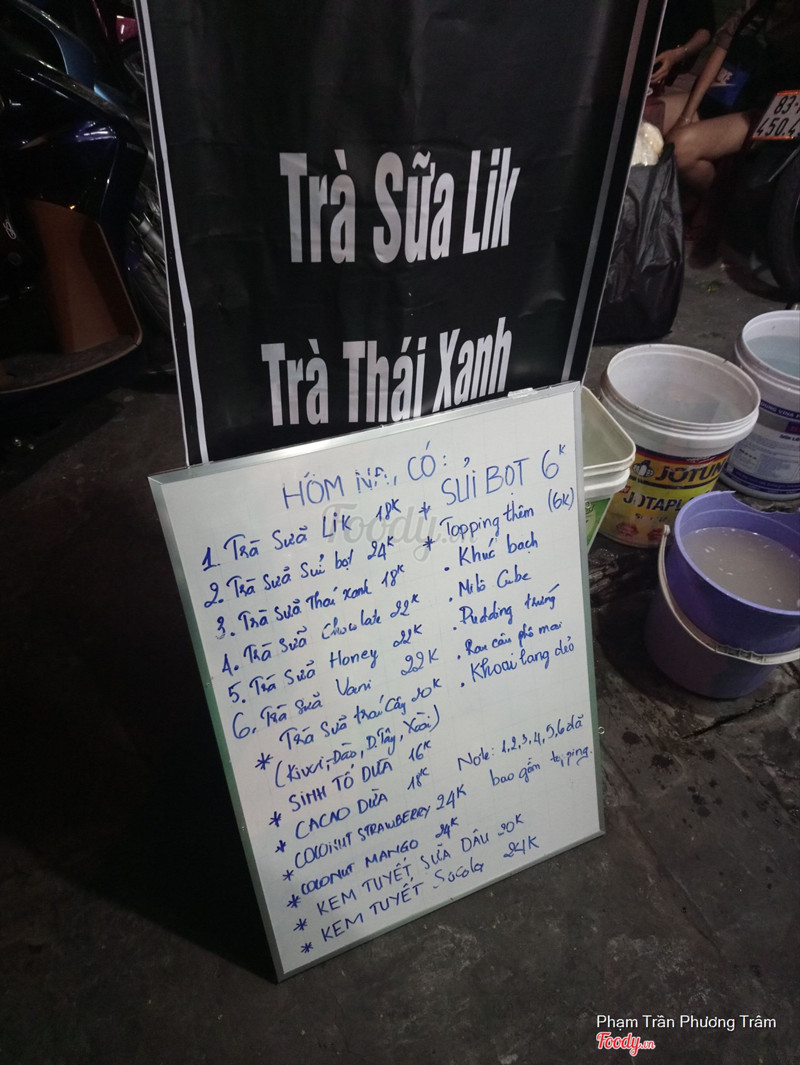 Trà Sữa Lik
Trà Thái Xanh
83
450.4
JOTUN
HÔM NA, CÓ:
1. Trà Sữa LiK 18K
2. Trà Sữa Sủi bọt 24K
3. Trà Sữa Thái xanh 18K
4. Trà Sữa Chocolate 22K
5. Trà Sữa Honey 22K
6. Trà Sữa Vani 22K
* Trà Sữa trái Cây 20K
(Kiwi, Đào, D.Tây, Xoài)
* SINH TỐ DỪA 16K
* CACAO DỪA 18K
* COCONUT STRAWBERRY 24K
* COCONUT MANGO 24K
* KEM TUYẾT SỮA DÂU 20K
* KEM TUYẾT Socola 24K
* SỦI BỌT 6K
* Topping thêm (6K)
. Khúc bạch
. Milô Cube
. Pudding trứng
. Rau câu phô mai
. Khoai lang dẻo
Note: 1,2,3,4,5,6 đã
bao gồm topping.
Foody.vn
Phạm Trần Phương Trâm
Foody.vn